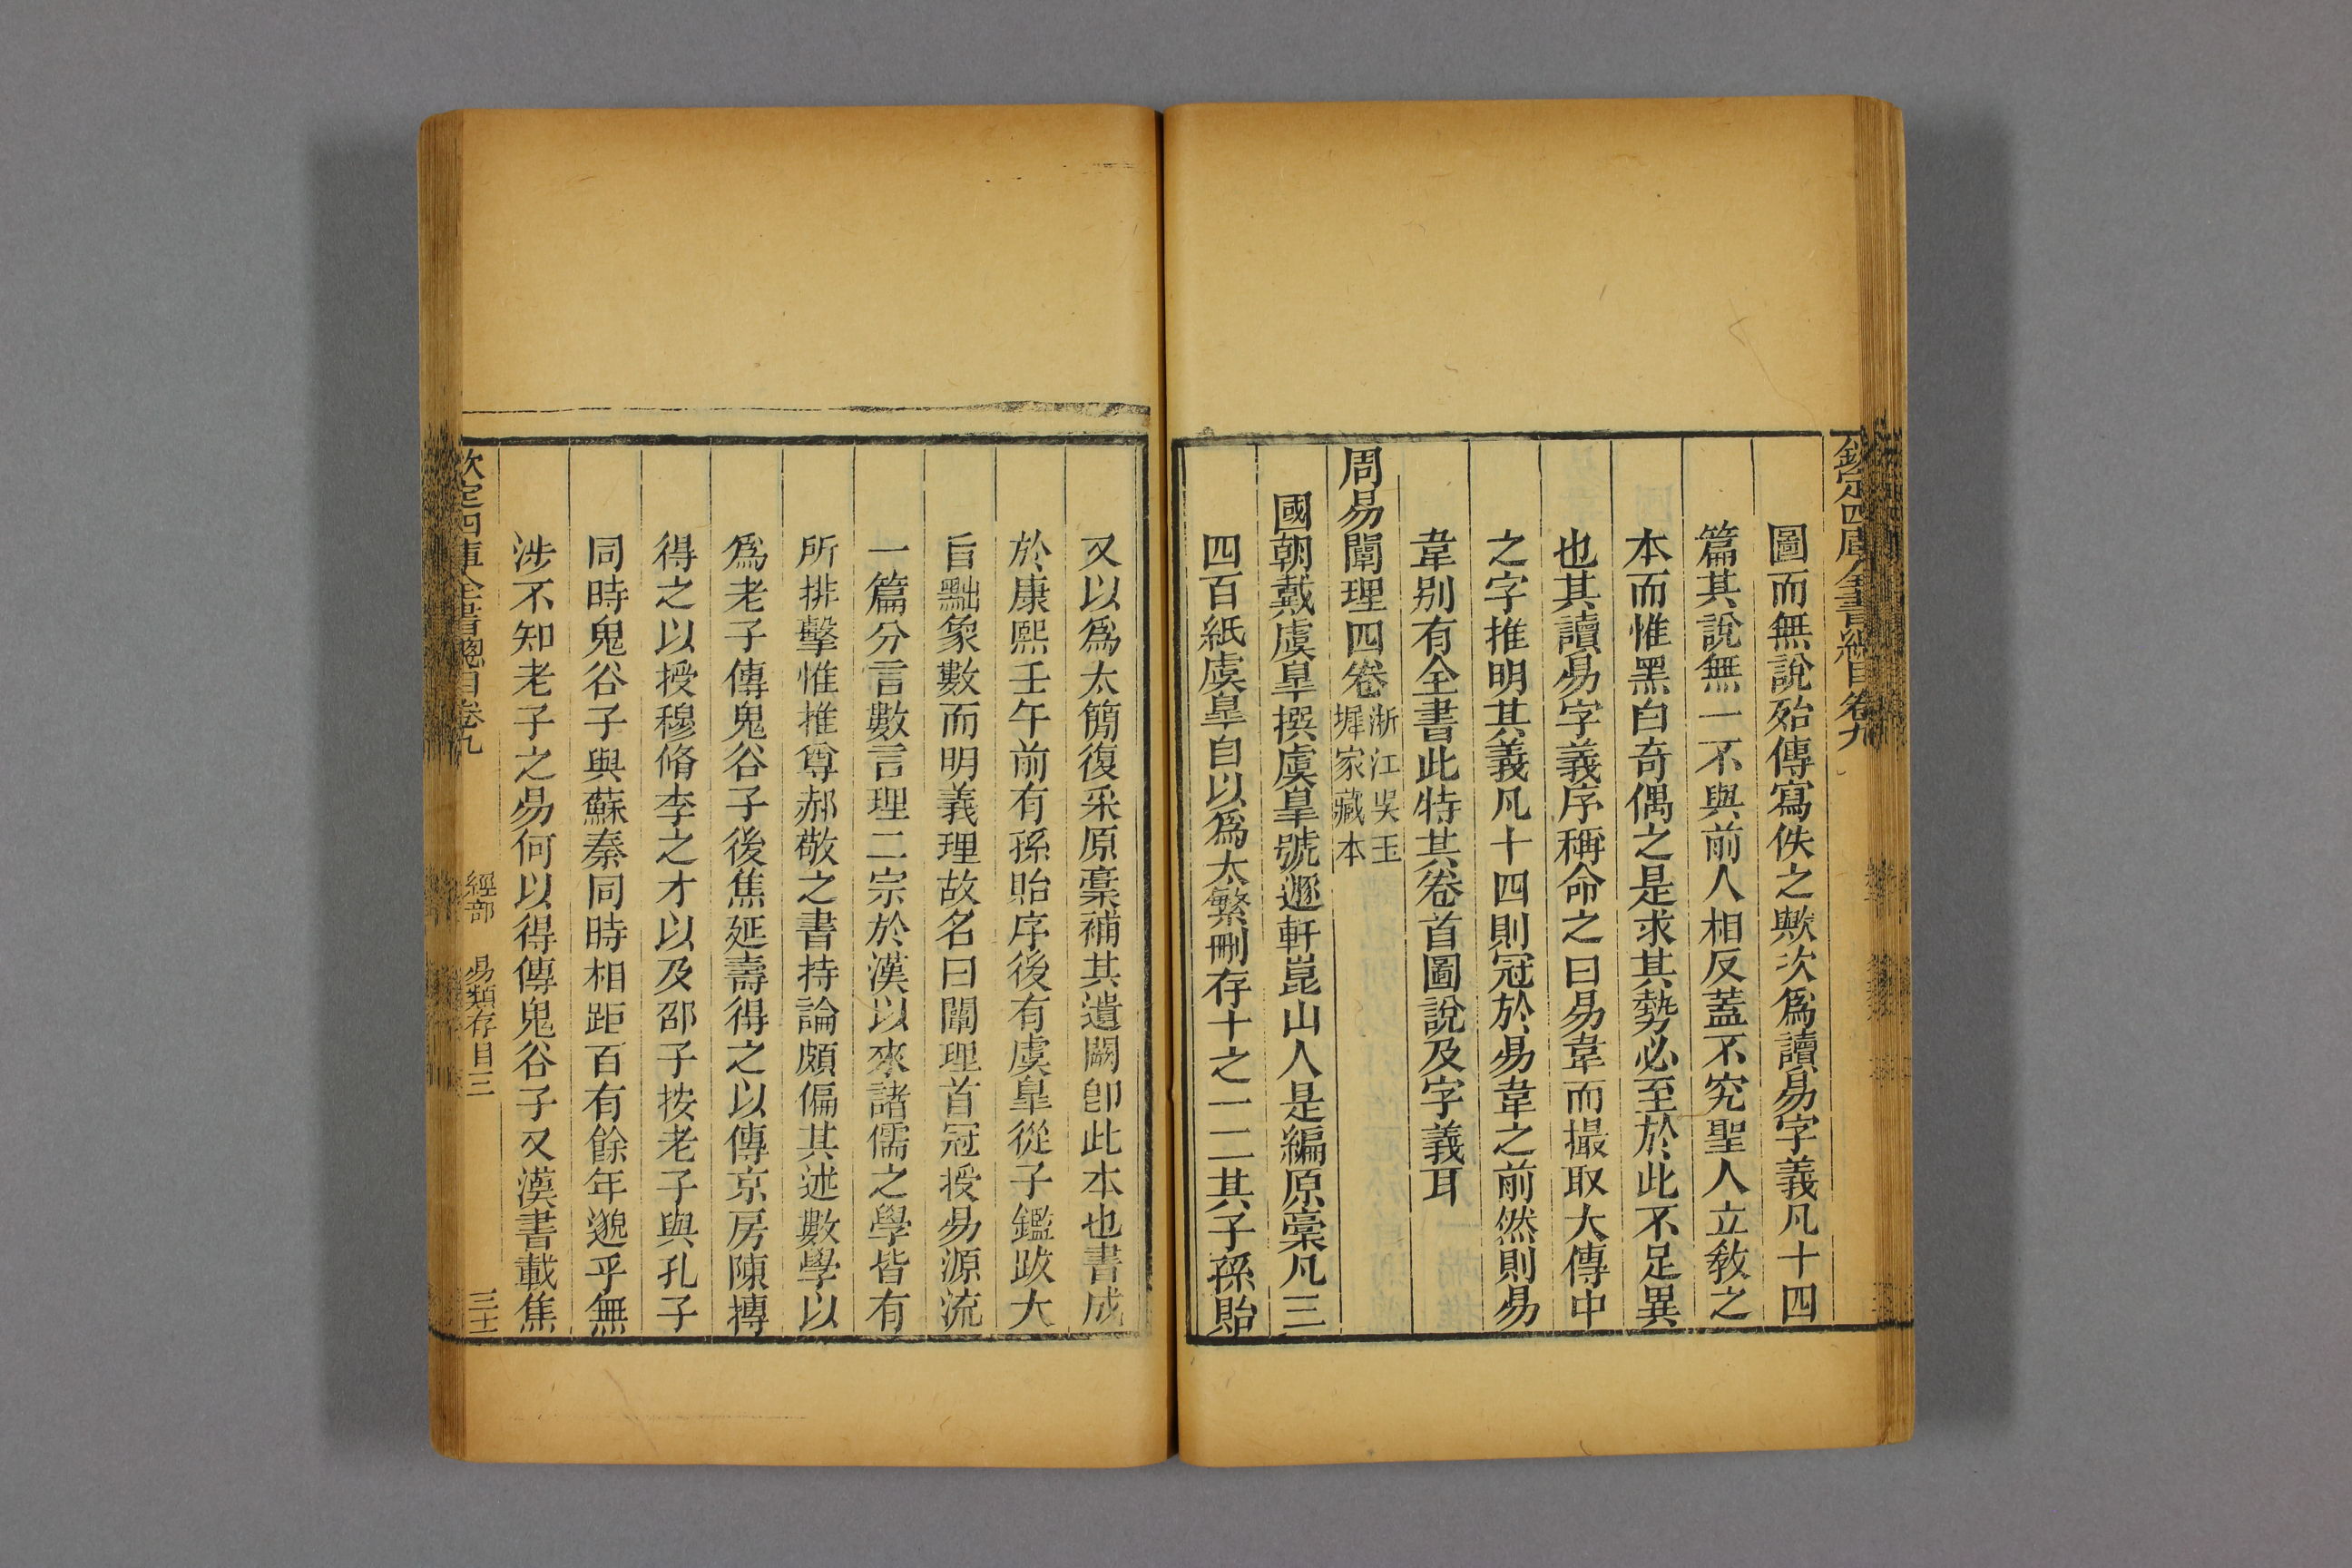 欽定四庫全書總目卷九
圖而無說殆傳寫佚之歟次爲讀易字義凡十四
篇其說無一不與前人相反蓋不究聖人立教之
本而惟黑白奇偶之是求其勢必至於此不足異
也其讀易字義序稱命之曰易韋而撮取大傳中
之字推明其義凡十四則冠於易韋之前然則易
韋别有全書此特其卷首圖說及字義耳
周易闡理四卷
浙江吳玉
墀家藏本
國朝戴虞臯撰虞臯號遯軒崑山人是編原藁凡三
四百紙虞臯自以爲太繁刪存十之一二其子孫貽
又以爲太簡復采原藁補其遺闕卽此本也書成
於康熙壬午前有孫貽序後有虞臯從子鑑跋大
旨黜象數而明義理故名曰闡理首冠授易源流
一篇分言數言理二宗於漢以來諸儒之學皆有
所排擊惟推尊郝敬之書持論頗偏其述數學以
爲老子傳鬼谷子後焦延壽得之以傳京房陳摶
得之以授穆脩李之才以及邵子按老子與孔子
同時鬼谷子與蘇秦同時相距百有餘年邈乎無
涉不知老子之易何以得傳鬼谷子又漢書載焦
欽定四庫全書總目卷九
經部
易類存目三
三十